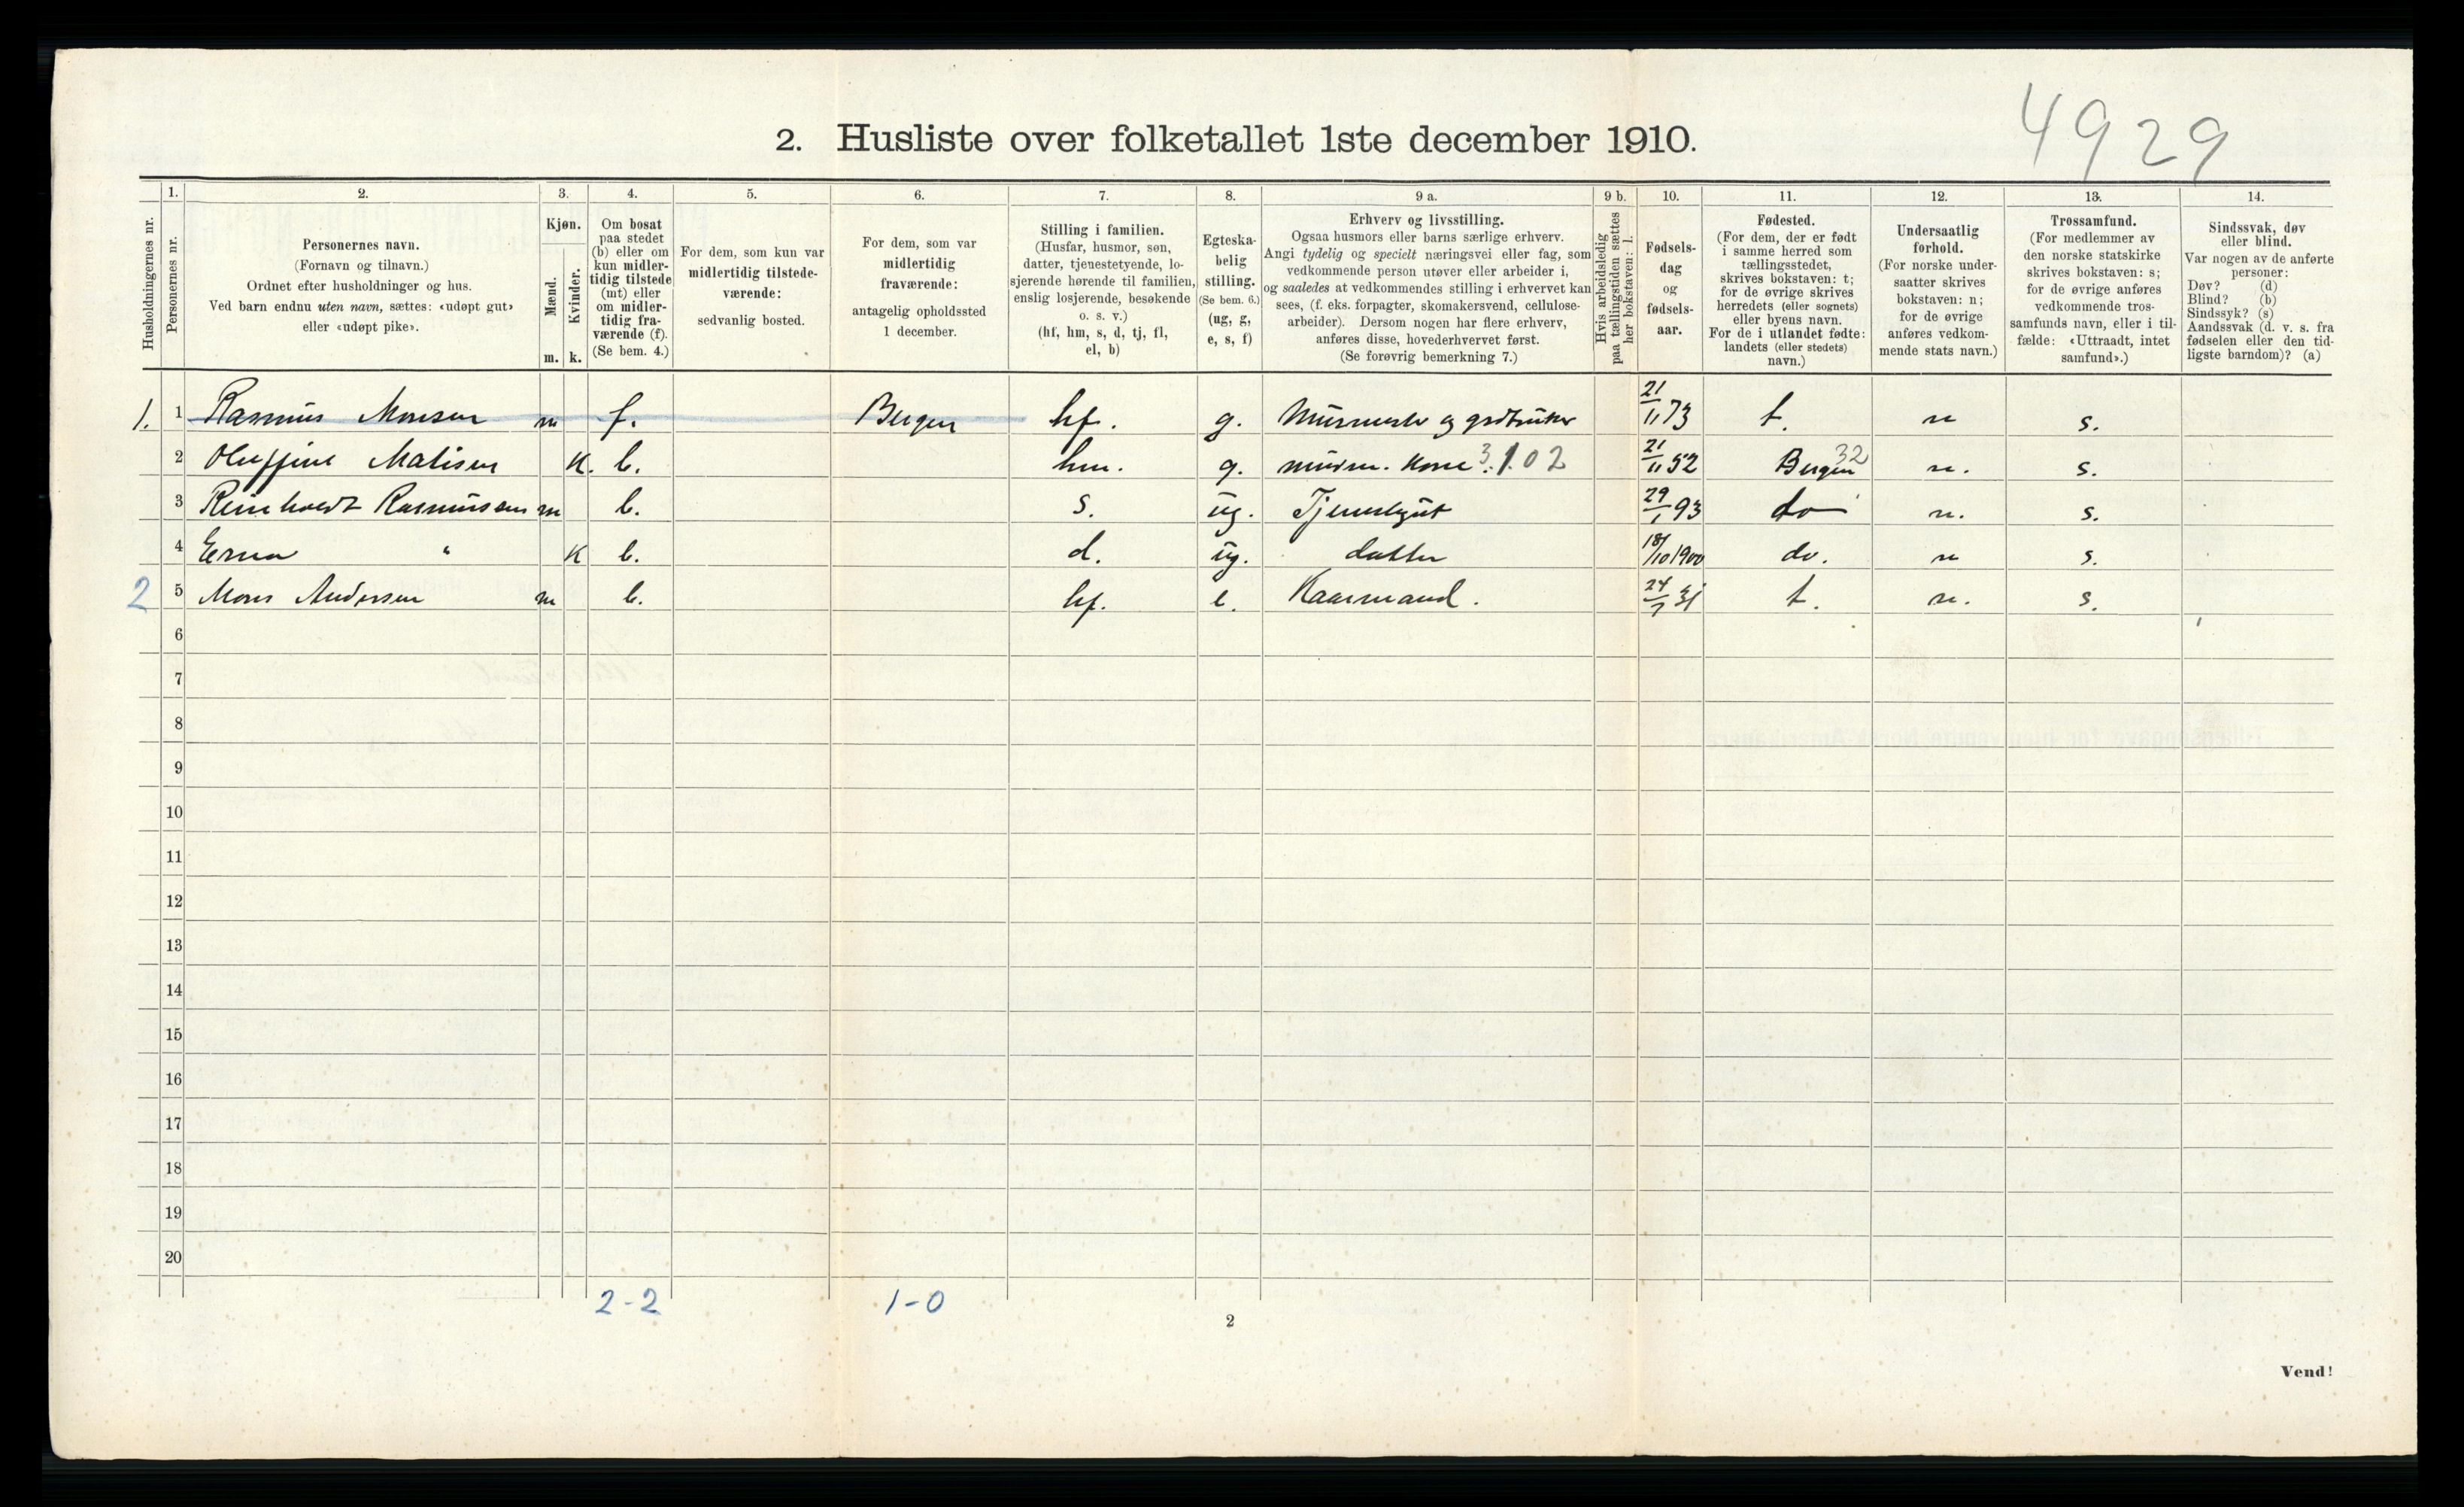 4929
2. Husliste over folketallet 1ste december 1910.
Husholdningernes nr.
1.
Personernes nr.
2.
Personernes navn.
(Fornavn og tilnavn.)
Ordnet efter husholdninger og hus.
Ved barn endnu uten navn, sættes: «udøpt gut»
eller «udøpt pike».
3.
Kjøn.
Mænd.
Kvinder.
m. k.
4.
Om bosat
paa stedet
(b) eller om
kun midler-
tidig tilstede
(mt) eller
om midler-
tidig fra-
værende (f).
(Se bem. 4.)
5.
For dem, som kun var
midlertidig tilstede-
værende:
sedvanlig bosted.
6.
For dem, som var
midlertidig
fraværende:
antagelig opholdssted
1 december.
7.
Stilling i familien.
(Husfar, husmor, søn,
datter, tjenestetyende, lo-
sjerende hørende til familien,
enslig losjerende, besøkende
o. s. v.)
(hf, hm, s, d, tj, fl,
el, b)
8.
Egteska-
belig
stilling.
(Se bem. 6.)
(ug, g,
e, s, f)
9 a.
Erhverv og livsstilling.
Ogsaa husmors eller barns særlige erhverv.
Angi tydelig og specielt næringsvei eller fag, som
vedkommende person utøver eller arbeider i,
og saaledes at vedkommendes stilling i erhvervet kan
sees, (f. eks. forpagter, skomakersvend, cellulose-
arbeider). Dersom nogen har flere erhverv,
anføres disse, hovederhvervet først.
(Se forøvrig bemerkning 7.)
9 b.
Hvis arbeidsledig
paa tællingstiden sættes
her bokstaven: l.
10.
Fødsels-
dag
og
fødsels-
aar.
11.
Fødested.
(For dem, der er født
i samme herred som
tællingsstedet,
skrives bokstaven: t;
for de øvrige skrives
herredets (eller sognets)
eller byens navn.
For de i utlandet fødte:
landets (eller stedets)
navn.)
12.
Undersaatlig
forhold.
(For norske under-
saatter skrives
bokstaven: n;
for de øvrige
anføres vedkom-
mende stats navn.)
13.
Trossamfund.
(For medlemmer av
den norske statskirke
skrives bokstaven: s;
for de øvrige anføres
vedkommende tros-
samfunds navn, eller i til-
fælde: «Uttraadt, intet
samfund».)
14.
Sindssvak, døv
eller blind.
Var nogen av de anførte
personer:
Døv? (d)
Blind? (b)
Sindssyk? (s)
Aandssvak (d. v. s. fra
fødselen eller den tid-
ligste barndom)? (a)
1. 1 Rasmus Monsen m f. Bergen hf. g. 21/11 73 t. n s.
2 Oluffine Matisen K. b. hm. g. murm. kone 3.1.02 21/11 52 Bergen 32 n. s.
3 Reinholdt Rasmussen m b. s. ug. Tjenestgut 29/1 93 do n. s.
4 Erna " K b. d. ug. datter 18/10 1900 do. n s.
2 5 Mons Andersen m b. hf. e. Kaarmand. 24/7 31 t. n. s.
6
7
8
9
10
11
12
13
14
15
16
17
18
19
20
2-2 1-0
2
Vend!